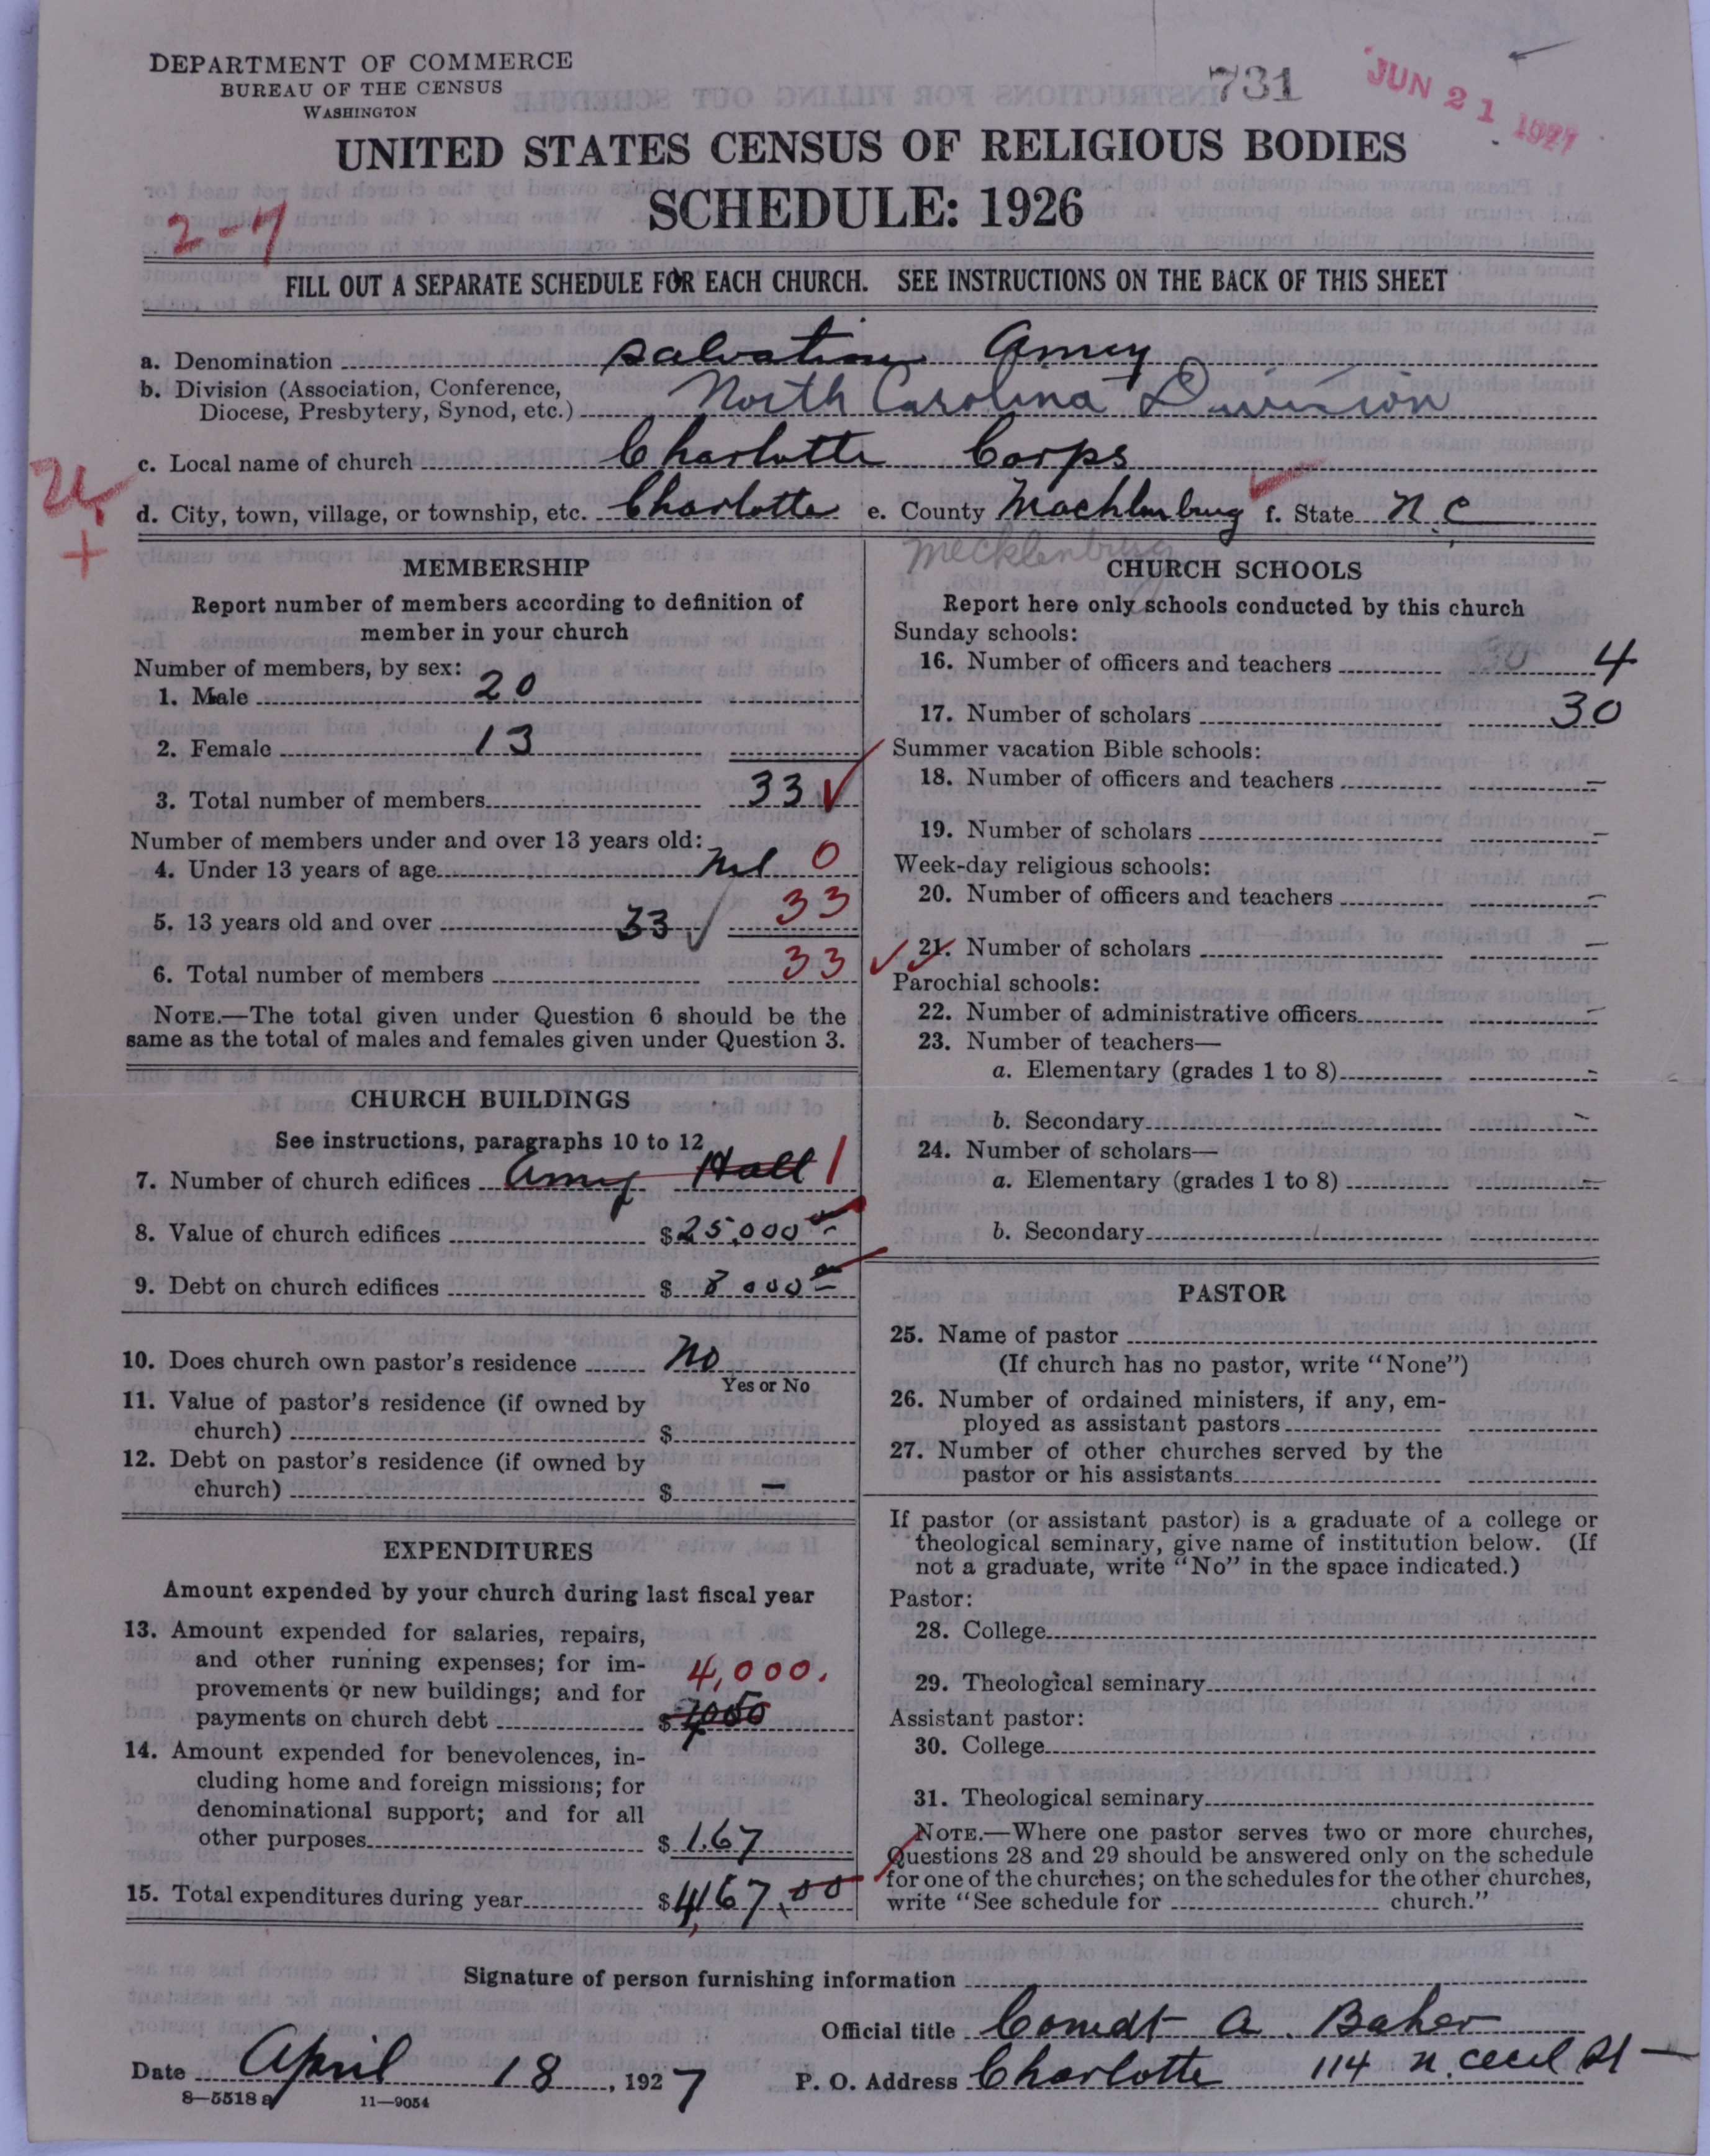 DEPARTMENT OF COMMERCE
BUREAU OF THE CENSUS
WASHINGTON
731
JUN 21 1927
UNITED STATES CENSUS OF RELIGIOUS BODIES
SCHEDULE: 1926
2-7
FILL OUT A SEPARATE SCHEDULE FOR EACH CHURCH. SEE INSTRUCTIONS ON THE BACK OF THIS SHEET
a. Denomination Salvation Army
b. Division (Association, Conference,
Diocese, Presbytery, Synod, etc.) North Carolina Division
c. Local name of church Charlotte Corps
d. City, town, village, or township, etc. Charlotte e. County Machlenburg f. State N.C
Mecklenburg
MEMBERSHIP
Report number of members according to definition of
member in your church
Number of members, by sex:
1. Male 20
2. Female 13
3. Total number of members 33
Number of members under and over 13 years old:
4. Under 13 years of age nil 0
5. 13 years old and over 33 33
6. Total number of members 33
NOTE.—The total given under Question 6 should be the
same as the total of males and females given under Question 3.
CHURCH BUILDINGS
See instructions, paragraphs 10 to 12
7. Number of church edifices Army Hall 1
8. Value of church edifices $25,000
9. Debt on church edifices $ 8000
10. Does church own pastor's residence No
Yes or No
11. Value of pastor's residence (if owned by
church) $
12. Debt on pastor's residence (if owned by
church) $ —
EXPENDITURES
Amount expended by your church during last fiscal year
13. Amount expended for salaries, repairs,
and other running expenses; for im-
provements or new buildings; and for
payments on church debt $ 4,000.
14. Amount expended for benevolences, in-
cluding home and foreign missions; for
denominational support; and for all
other purposes $ 1.67
15. Total expenditures during year $4,167.00
CHURCH SCHOOLS
Report here only schools conducted by this church
Sunday schools:
16. Number of officers and teachers 4
17. Number of scholars 30
Summer vacation Bible schools:
18. Number of officers and teachers —
19. Number of scholars —
Week-day religious schools:
20. Number of officers and teachers —
21. Number of scholars —
Parochial schools:
22. Number of administrative officers —
23. Number of teachers—
a. Elementary (grades 1 to 8) —
b. Secondary —
24. Number of scholars—
a. Elementary (grades 1 to 8) —
b. Secondary
PASTOR
25. Name of pastor
(If church has no pastor, write "None")
26. Number of ordained ministers, if any, em-
ployed as assistant pastors
27. Number of other churches served by the
pastor or his assistants
If pastor (or assistant pastor) is a graduate of a college or
theological seminary, give name of institution below. (If
not a graduate, write "No" in the space indicated.)
Pastor:
28. College
29. Theological seminary
Assistant pastor:
30. College
31. Theological seminary
NOTE.—Where one pastor serves two or more churches,
Questions 28 and 29 should be answered only on the schedule
for one of the churches; on the schedules for the other churches,
write "See schedule for church."
Signature of person furnishing information
Official title Comdt A. Baker
Date April 18, 1927 P. O. Address Charlotte 114 N. Cecil St
8—5518 a 11—9054